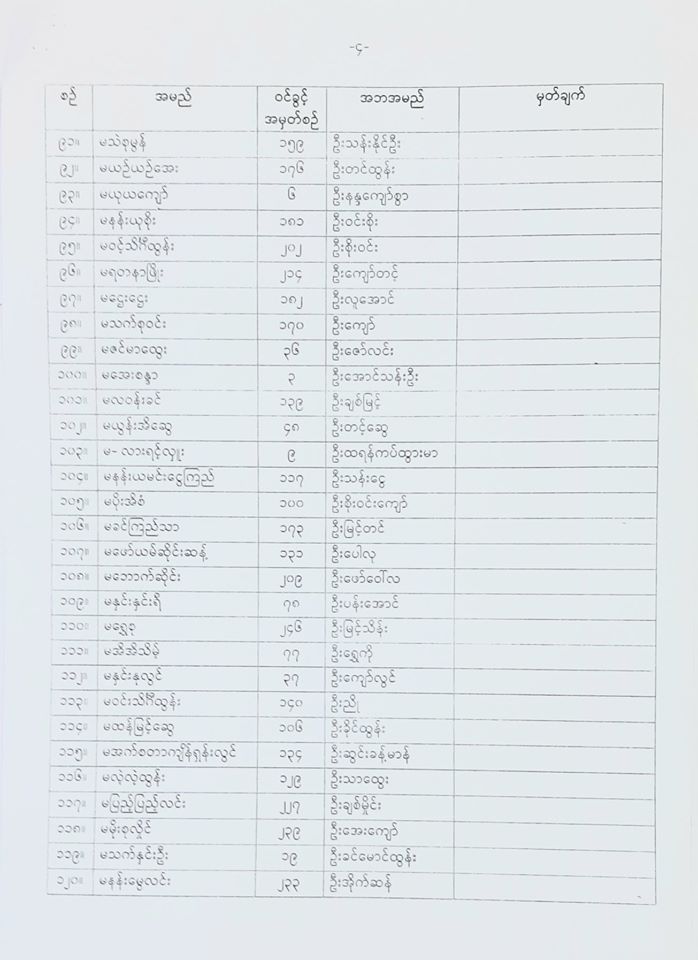 -၄-
စဉ် အမည် ဝင်ခွင့် အမှတ်စဉ် အဘအမည် မှတ်ချက်
၉၁။ မသဲစုမွန် ၁၅၉ ဦးသန်းနိုင်ဦး
၉၂။ မယဉ်ယဉ်အေး ၁၇၆ ဦးတင်ထွန်း
၉၃။ မယုယကျော် ၆ ဦးနန္ဒကျော်စွာ
၉၄။ မနန်းယုစိုး ၁၈၁ ဦးဝင်းစိုး
၉၅။ မဝင့်သိင်္ဂီထွန်း ၂၀၂ ဦးစိုးဝင်း
၉၆။ မရတနာဖြိုး ၂၁၄ ဦးကျော်တင့်
၉၇။ မဌေးဌေး ၁၈၂ ဦးလူအောင်
၉၈။ မသက်စုဝင်း ၁၇၀ ဦးကျော်
၉၉။ မဇင်မာထွေး ၃၆ ဦးဇော်လင်း
၁၀၀။ မအေးစန္ဒာ ၃ ဦးအောင်သန်းဦး
၁၀၁။ မလဝန်းခင် ၁၃၉ ဦးချစ်မြင့်
၁၀၂။ မယွန်းအိဆွေ ၄၈ ဦးတင့်ဆွေ
၁၀၃။ မ- လားရင့်လှူး ၉ ဦးထရန်ကပ်ထွားမာ
၁၀၄။ မနန်းယမင်းငွေကြည် ၁၁၇ ဦးသန်းငွေ
၁၀၅။ မပိုးအိစံ ၁၀၀ ဦးစိုးဝင်းကျော်
၁၀၆။ မခင်ကြည်သာ ၁၇၃ ဦးမြင့်တင်
၁၀၇။ မဖော်ယမ်ဆိုင်းဆန့် ၁၃၁ ဦးပေါလု
၁၀၈။ မဘောက်ဆိုင်း ၂၀၉ ဦးဖော်ဝေါ်လ
၁၀၉။ မနှင်းနှင်းရီ ၇၈ ဦးပန်းအောင်
၁၁၀။ မရွှေစု ၂၄၆ ဦးမြင့်သိန်း
၁၁၁။ မအိအိသိမ့် ၇၇ ဦးရွှေကို
၁၁၂။ မနှင်းနုလွင် ၃၇ ဦးကျော်လွင်
၁၁၃။ မဝင်းသိင်္ဂီထွန်း ၁၄၀ ဦးညို
၁၁၄။ မထန်မြင့်ဆွေ ၁၀၆ ဦးခိုင်ထွန်း
၁၁၅။ မအက်စတာကျိန်ရှန်းလွင် ၁၃၄ ဦးဆွင်းခန့်မာန်
၁၁၆။ မလဲ့လဲ့ထွန်း ၁၂၉ ဦးသာထွေး
၁၁၇။ မပြည့်ပြည့်လင်း ၂၂၇ ဦးချစ်မှိုင်း
၁၁၈။ မမိုးစုလှိုင် ၂၃၉ ဦးအေးကျော်
၁၁၉။ မသက်နှင်းဦး ၁၉ ဦးခင်မောင်ထွန်း
၁၂၀။ မနန်းမွေလင်း ၂၃၃ ဦးအိုက်ဆန်